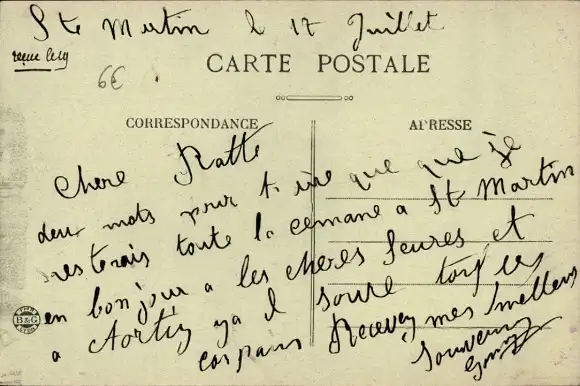 Ste Mertin le 17 Juillet
reçue le 19
6€
CARTE POSTALE
CORRESPONDANCE
ADRESSE
Chere Ratte
deux mots pour t ire que que je
resterais toute la cemane a St Martin
en bonjour a les cheres Seures et
a ya soure
Recevez mes melleurs
Souvenirs
B&G